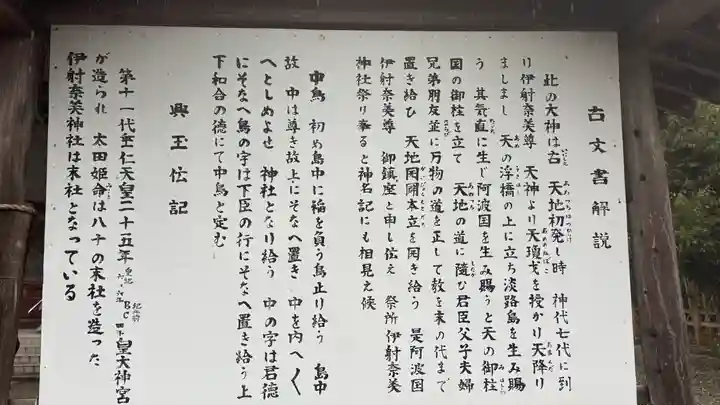 古文書解説
此の大神は古 天地初発し時 神代七代に到
り伊射奈美尊 天神より天瓊戈を授かり天降り
ましまし 天の浮橋の上に立ち淡路島を生み賜
う 其気直に生じ阿波国を生み賜うと天の御柱
国の御柱を立て 天地の道に随ひ君臣父子夫婦
兄弟朋友並に万物の道を正して教を末の代まで
置き給ひ 天地 本立を開き給う 是阿波国
伊射奈美尊 御鎮座と申し伝え 祭所伊射奈美
神社祭り奉ると神名記にも相見え候
中鳥 初め島中に稲を負う鳥止り給う 島中
故 中は尊き故上にそなへ置き 中を内へ〱
へとしめよせ 神社となり給う 中の字は君徳
にそなへ鳥の字は下臣の行にそなへ置き給う上
下和合の徳にて中鳥と定む
興玉伝記
第十一代垂仁天皇二十五年 BC 皇大神宮
が造られ 太田姫命は八千の末社を造った
伊射奈美神社は末社となっている